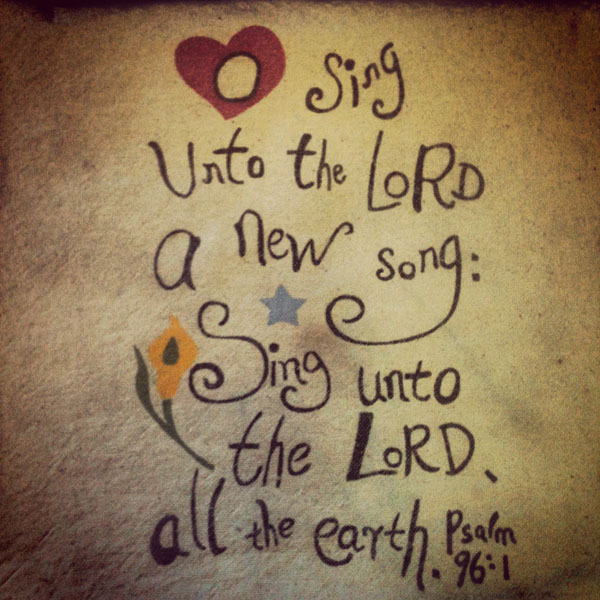 O Sing
Unto the LORD
a new song:
Sing unto
the LORD,
all the earth. Psalm
96:1